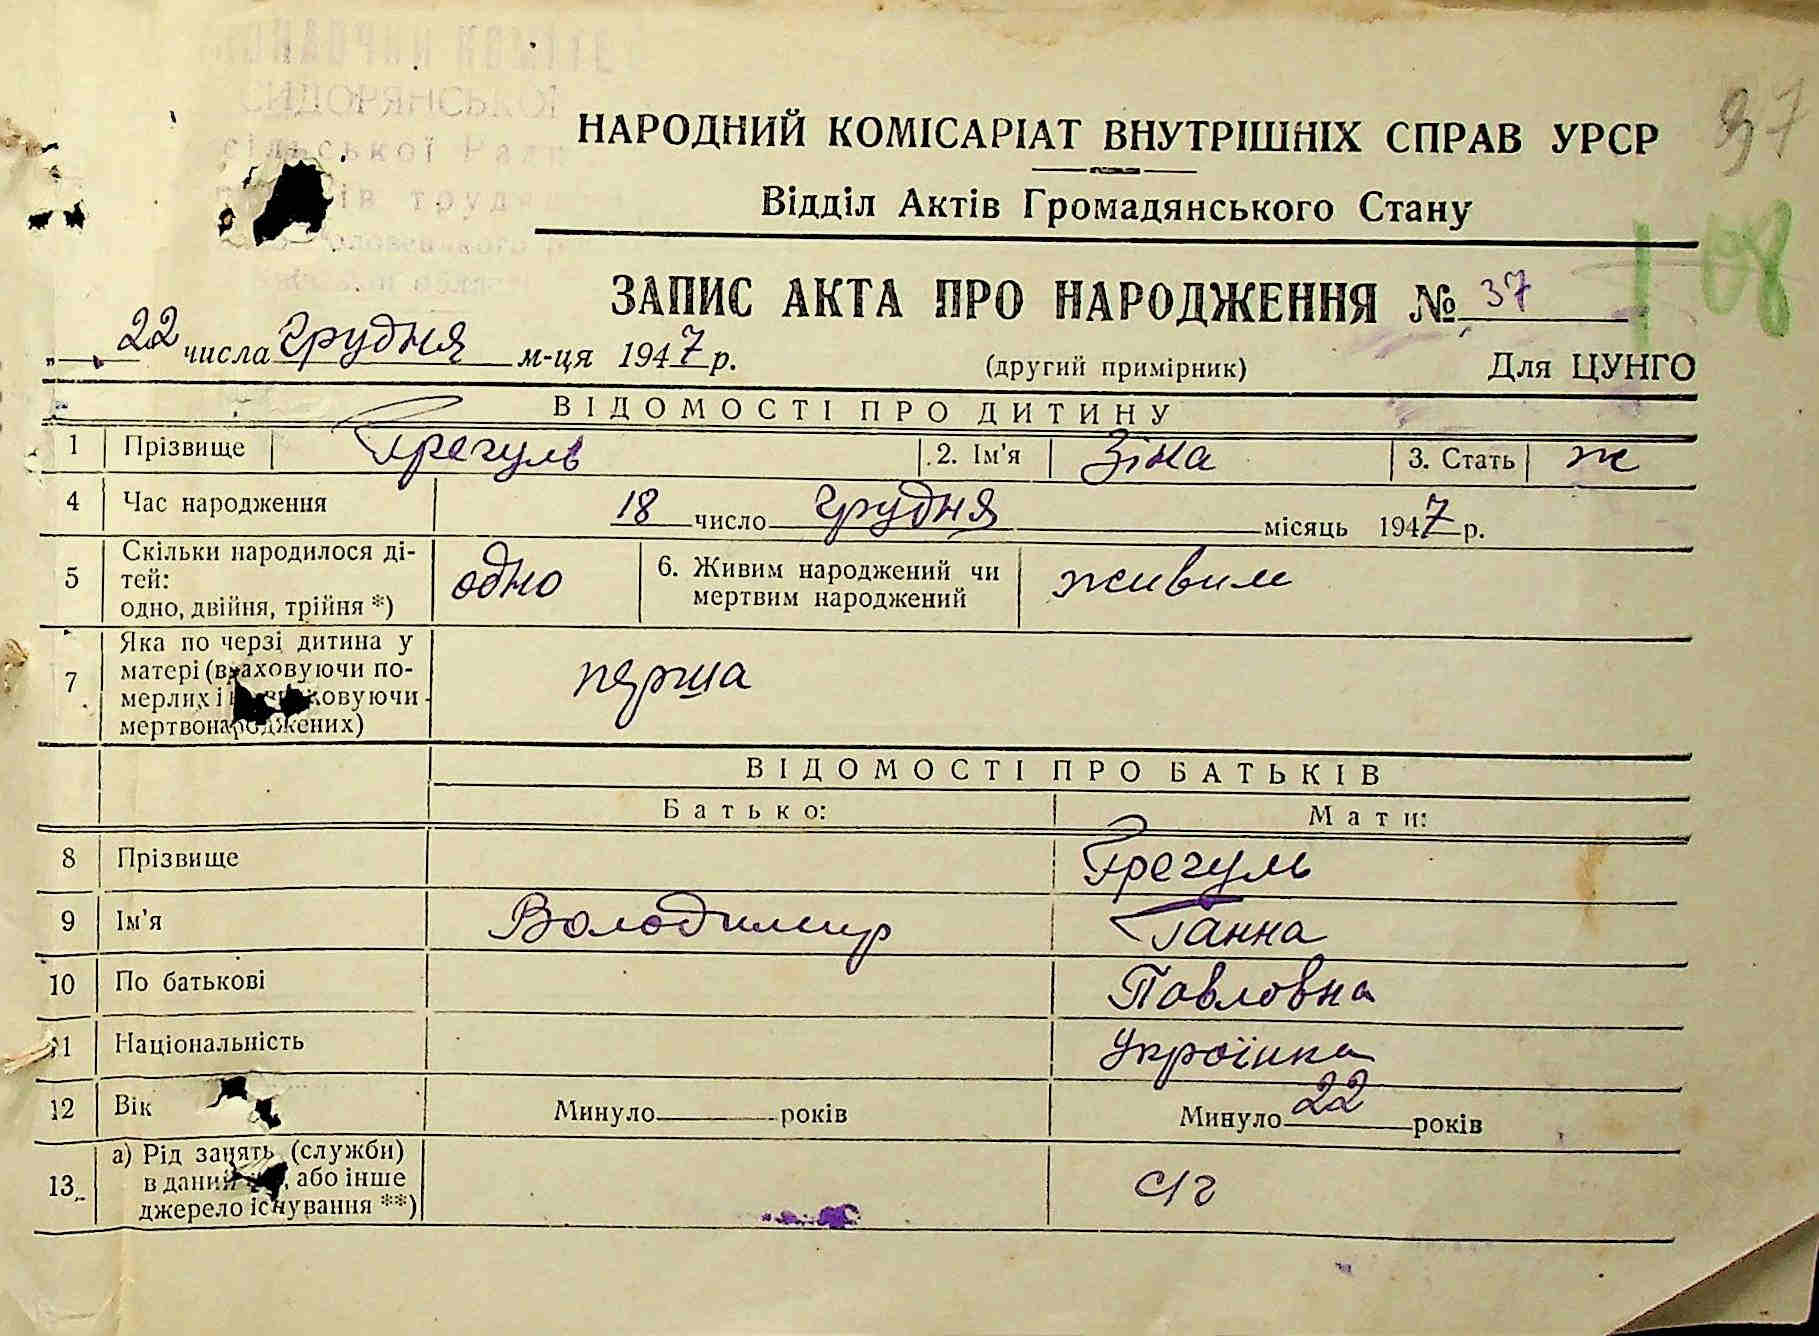 СИДОРЯНСЬКОЇ
сільської Ради
37
НАРОДНИЙ КОМІСАРІАТ ВНУТРІШНІХ СПРАВ УРСР
Відділ Актів Громадянського Стану
108
ЗАПИС АКТА ПРО НАРОДЖЕННЯ № 37
„ 22 числа Грудня м-ця 1947 р. (другий примірник) Для ЦУНГО
ВІДОМОСТІ ПРО ДИТИНУ
1 Прізвище Грегуль 2. Ім'я Зіна 3. Стать ж
4 Час народження 18 число грудня місяць 1947 р.
5 Скільки народилося ді-
тей:
одно, двійня, трійня *) одно 6. Живим народжений чи
мертвим народжений живим
7 Яка по черзі дитина у
матері (враховуючи по-
мерлих і ховуючи
мертвонароджених) перша
ВІДОМОСТІ ПРО БАТЬКІВ
Батько: Мати:
8 Прізвище Грегуль
9 Ім'я Володимир Ганна
10 По батькові Павловна
11 Національність Українка
12 Вік Минуло років Минуло 22 років
13 а) Рід занять (служби)
в даний , або інше
джерело існування **) с/г